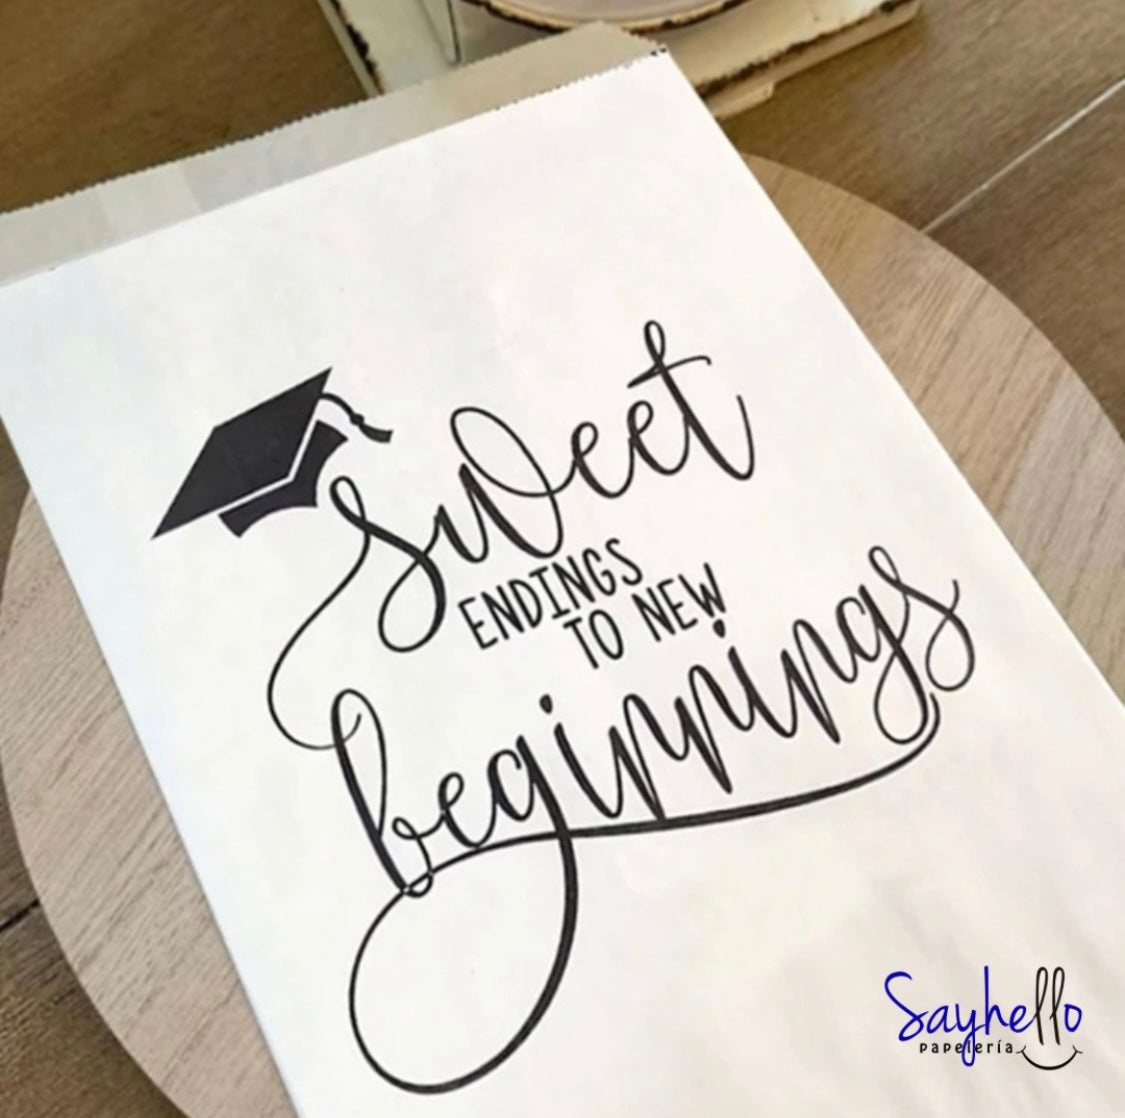 sweet
ENDINGS
TO NEW
beginnings
Sayhello
papelería